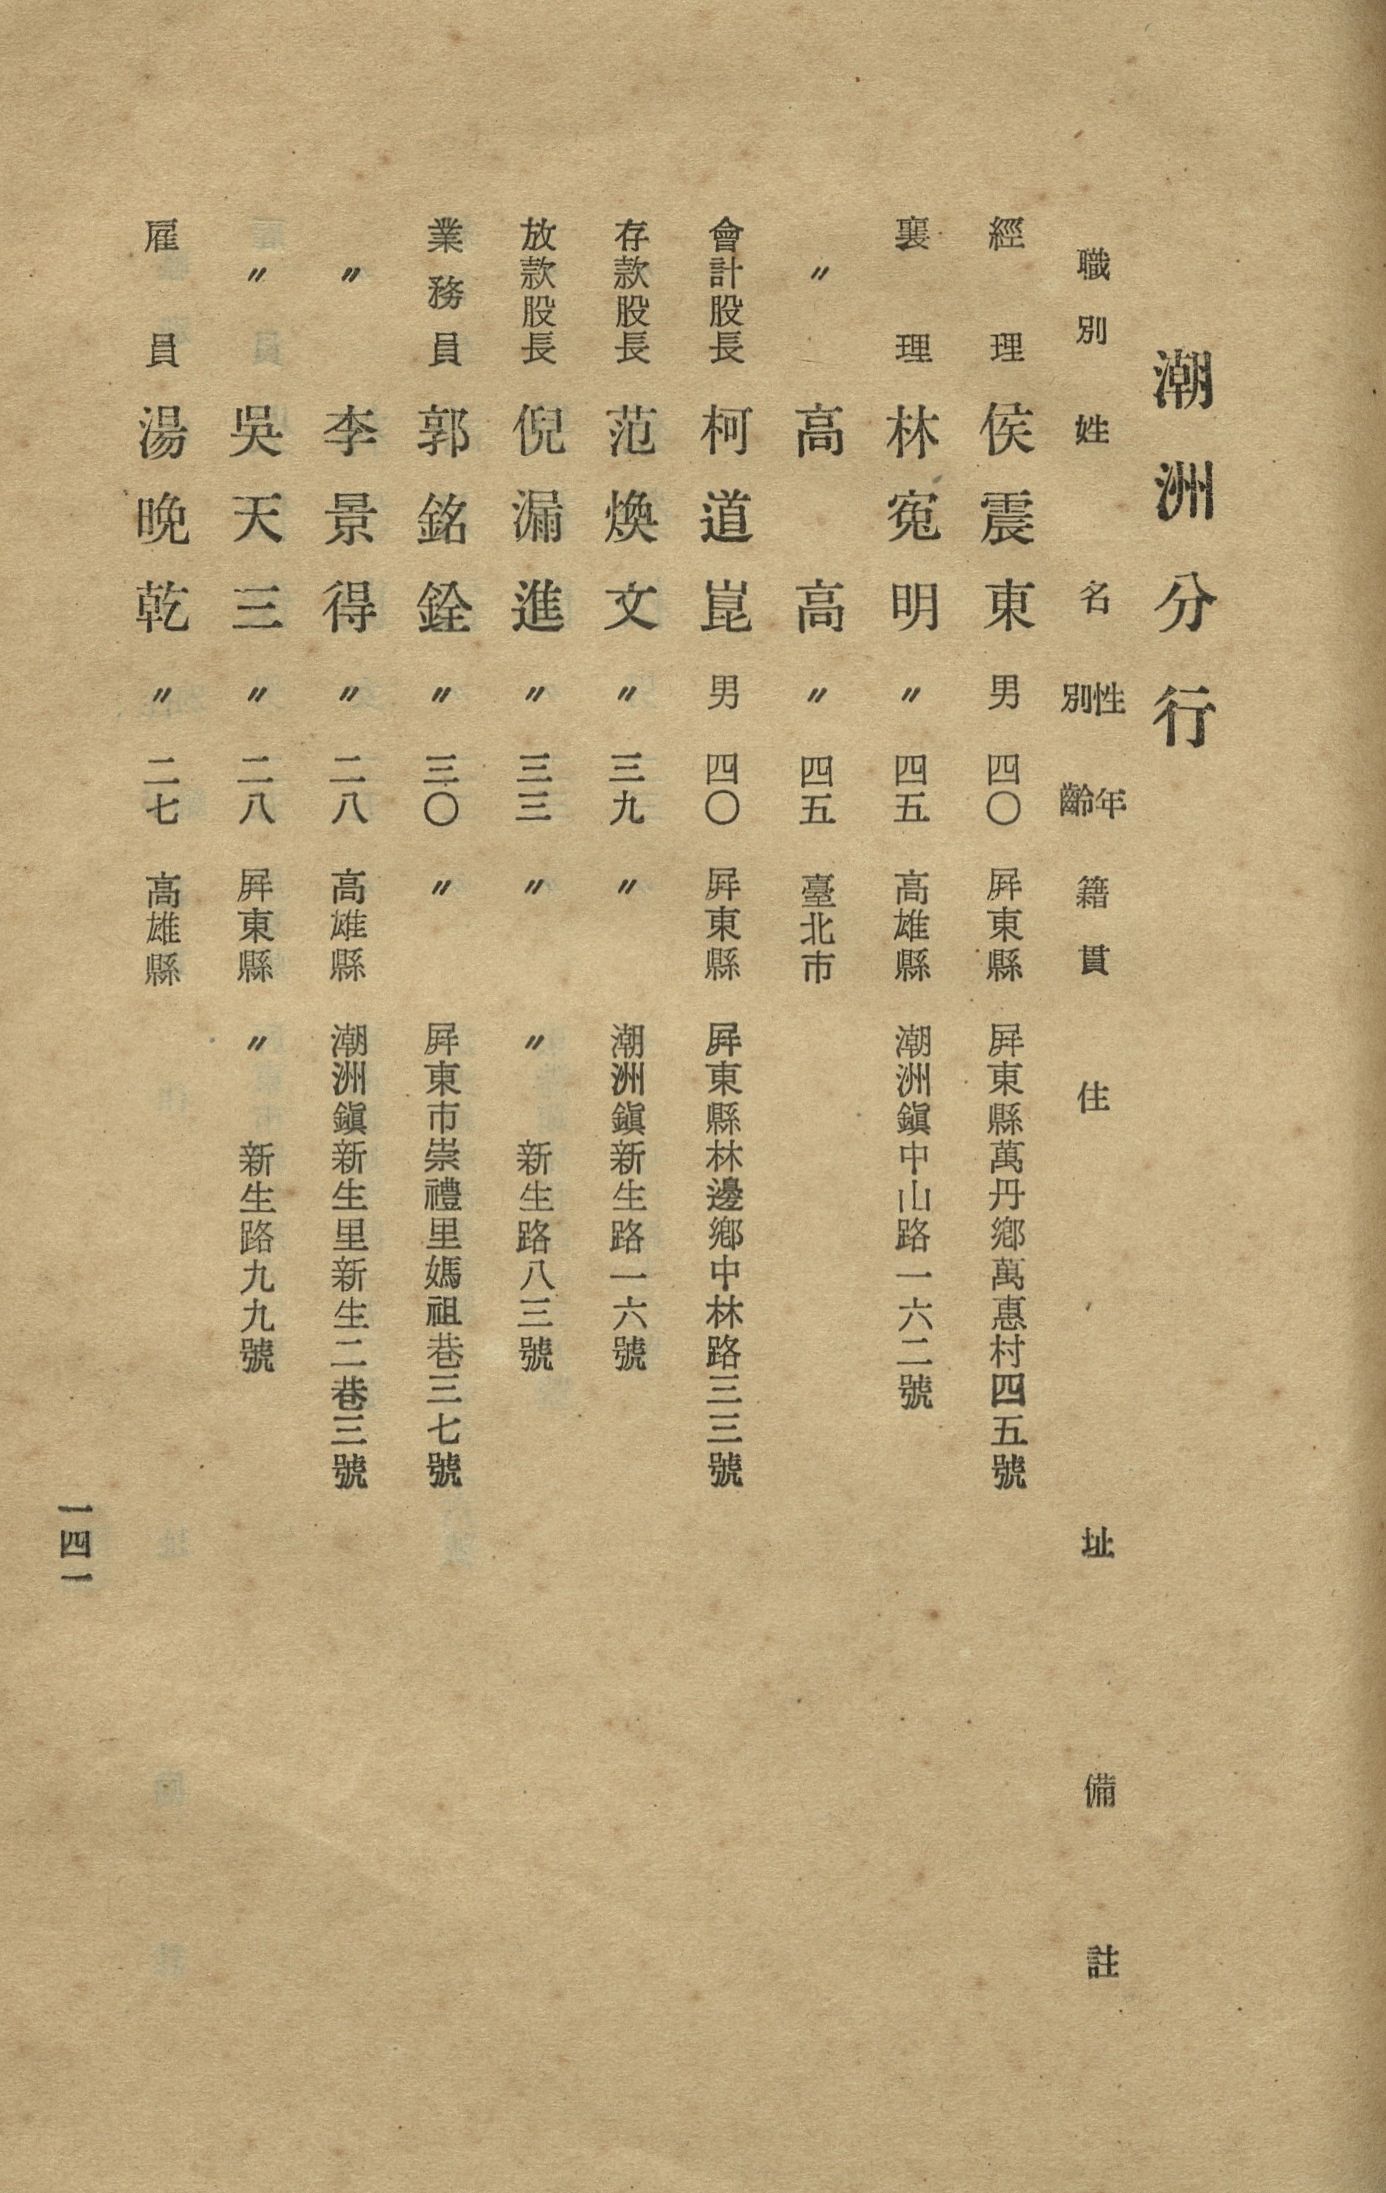 潮洲分行
職別 姓名 性別 年齡 籍貫 住址 備註
經理 侯震東 男 四〇 屛東縣 屛東縣萬丹鄉萬惠村四五號
襄理 林寃明 〃 四五 高雄縣 潮洲鎭中山路一六二號
〃 高高 〃 四五 臺北市
會計股長 柯道崑 男 四〇 屛東縣 屛東縣林邊鄉中林路三三號
存款股長 范煥文 〃 三九 〃 潮洲鎭新生路一六號
放款股長 倪漏進 〃 三三 〃 〃 新生路八三號
業務員 郭銘銓 〃 三〇 〃 屛東市崇禮里媽祖巷三七號
〃 李景得 〃 二八 高雄縣 潮洲鎭新生里新生二巷三號
〃 吳天三 〃 二八 屛東縣 〃 新生路九九號
雇員 湯晚乾 〃 二七 高雄縣
一四一